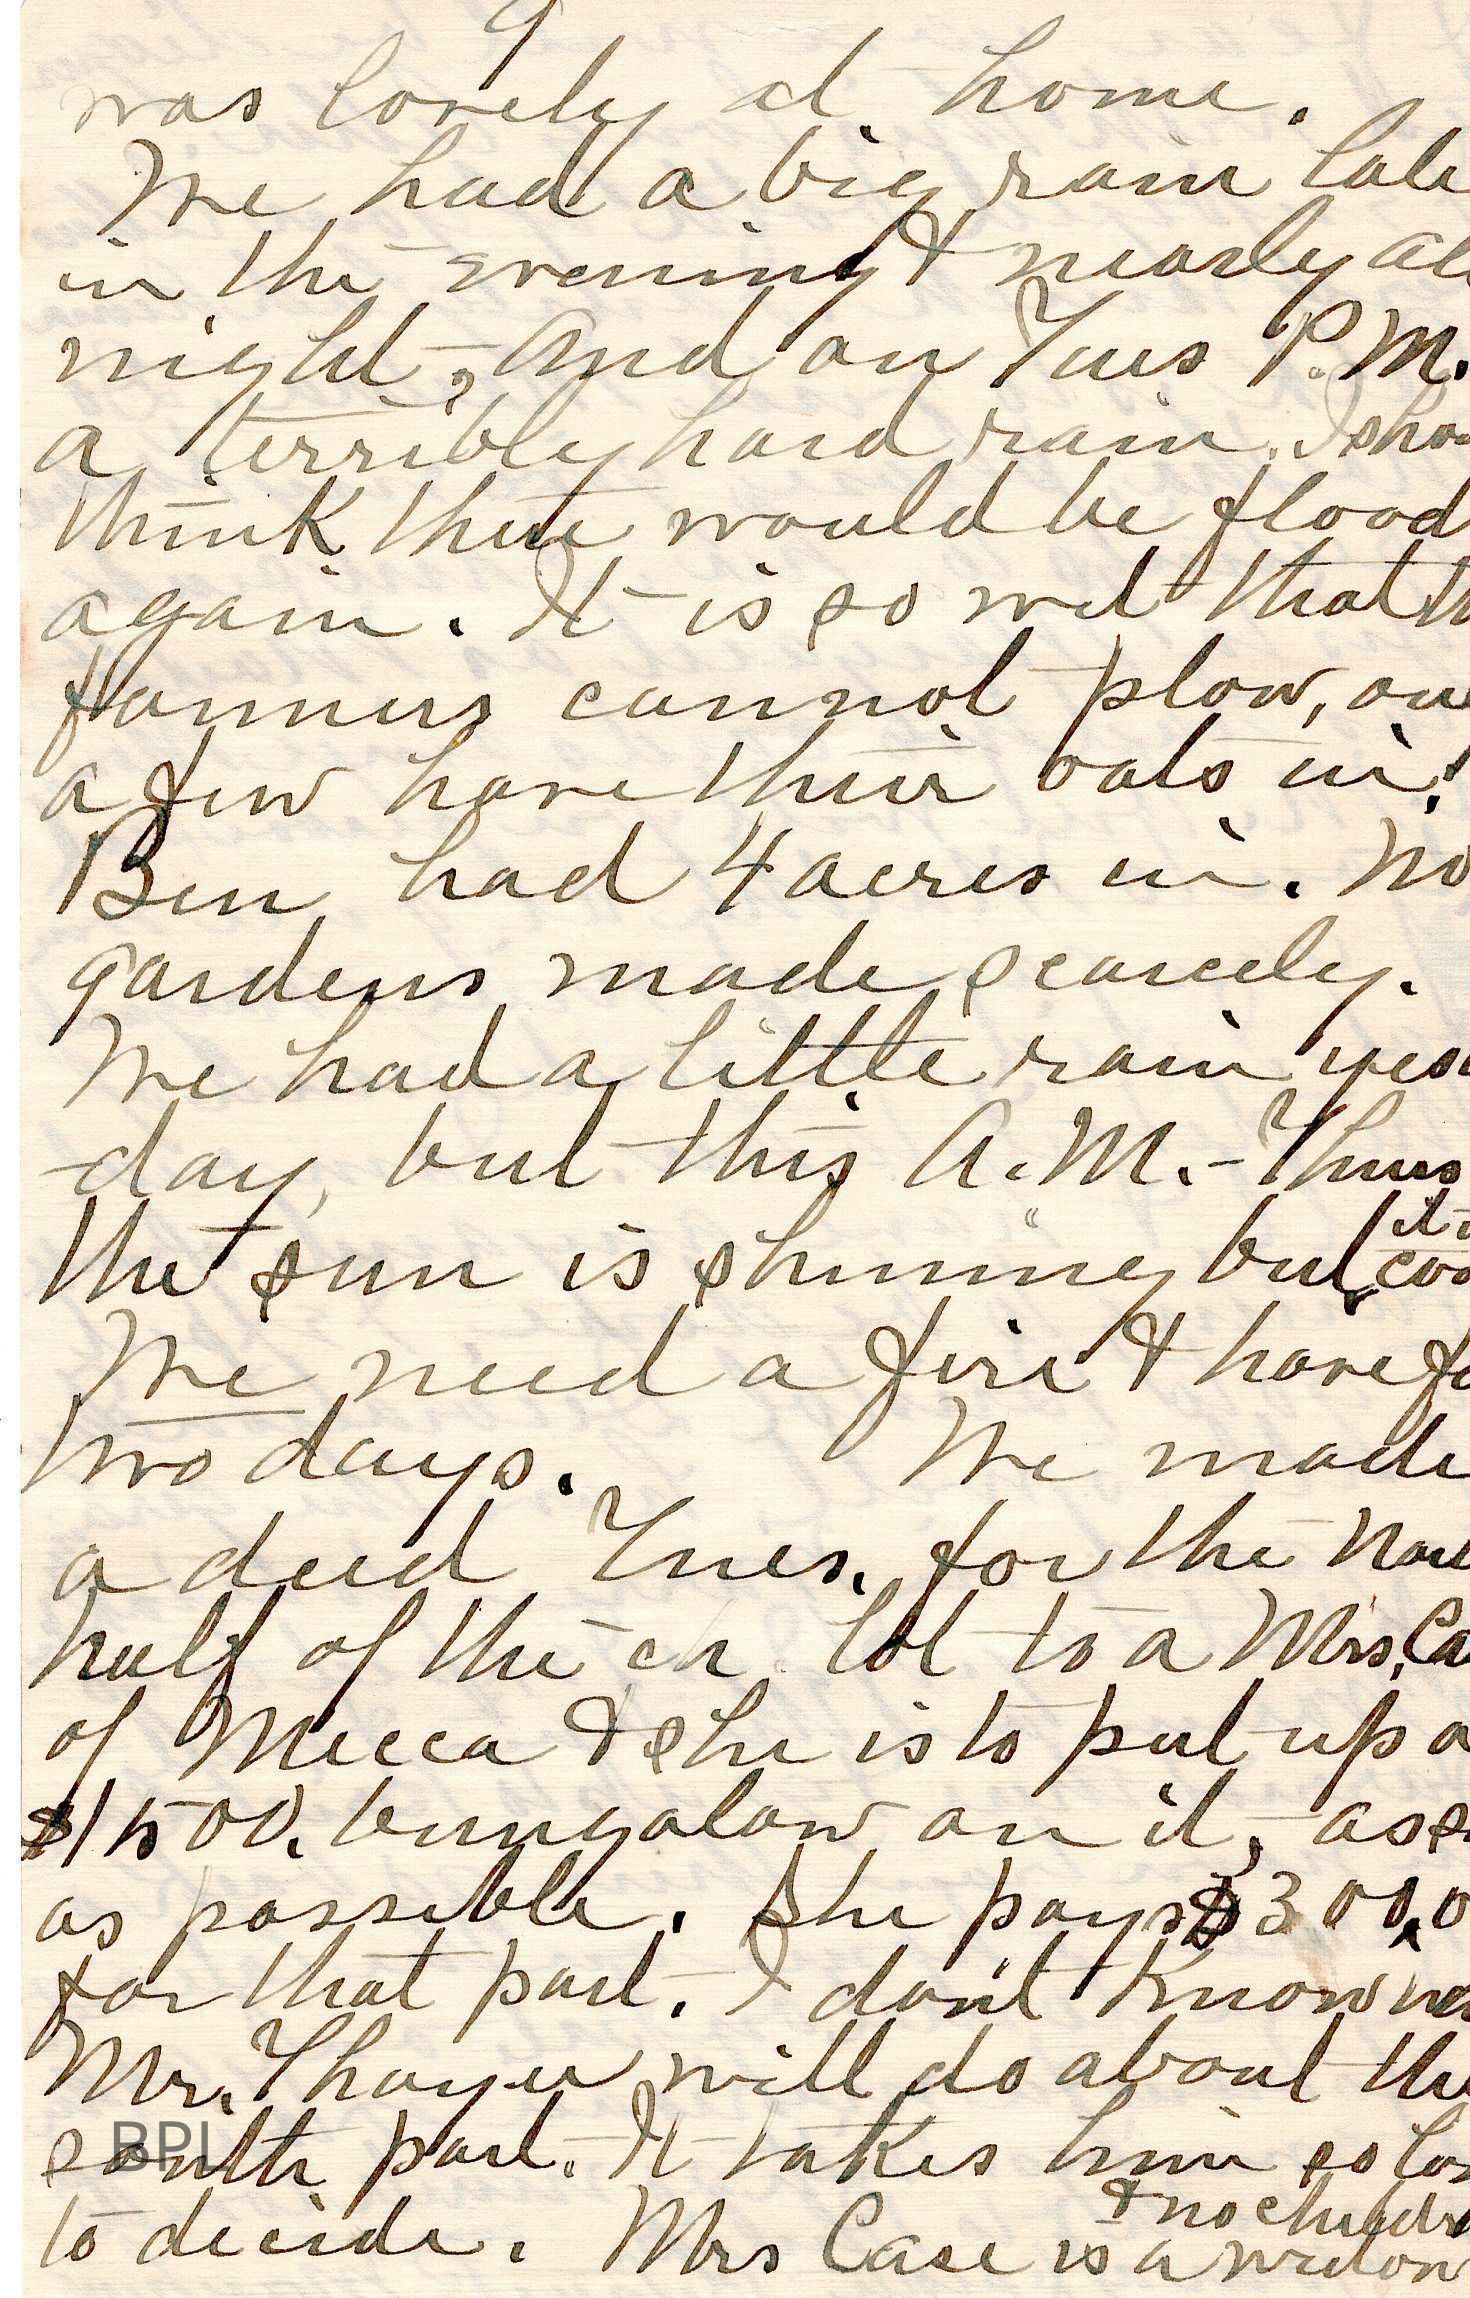 9
was lovely at home.
We had a big rain late
in the evening & nearly al
night, and on Tues P.M.
a terribly hard rain. I sho
think there would be flood
again. It is so wet that th
farmers cannot plow, on
a few have their oats in.
Ben had 4 acres in. No
gardens made scarcely.
We had a little rain yes
day, but this A.M. - Thurs
the sun is shining but it
coo
We need a fire & have fo
two days. We made
a deed Tues. for the Nor
half of the ch. lot to a Mrs. Ca
of Mecca & she is to put up a
$1500. bungalow on it, as s
as possible. She pays $300.0
for that part. I don't know
Mr. Thayer will do about the
south part. It takes him so lon
to decide. Mrs Case is a widow
& no childr
BPL